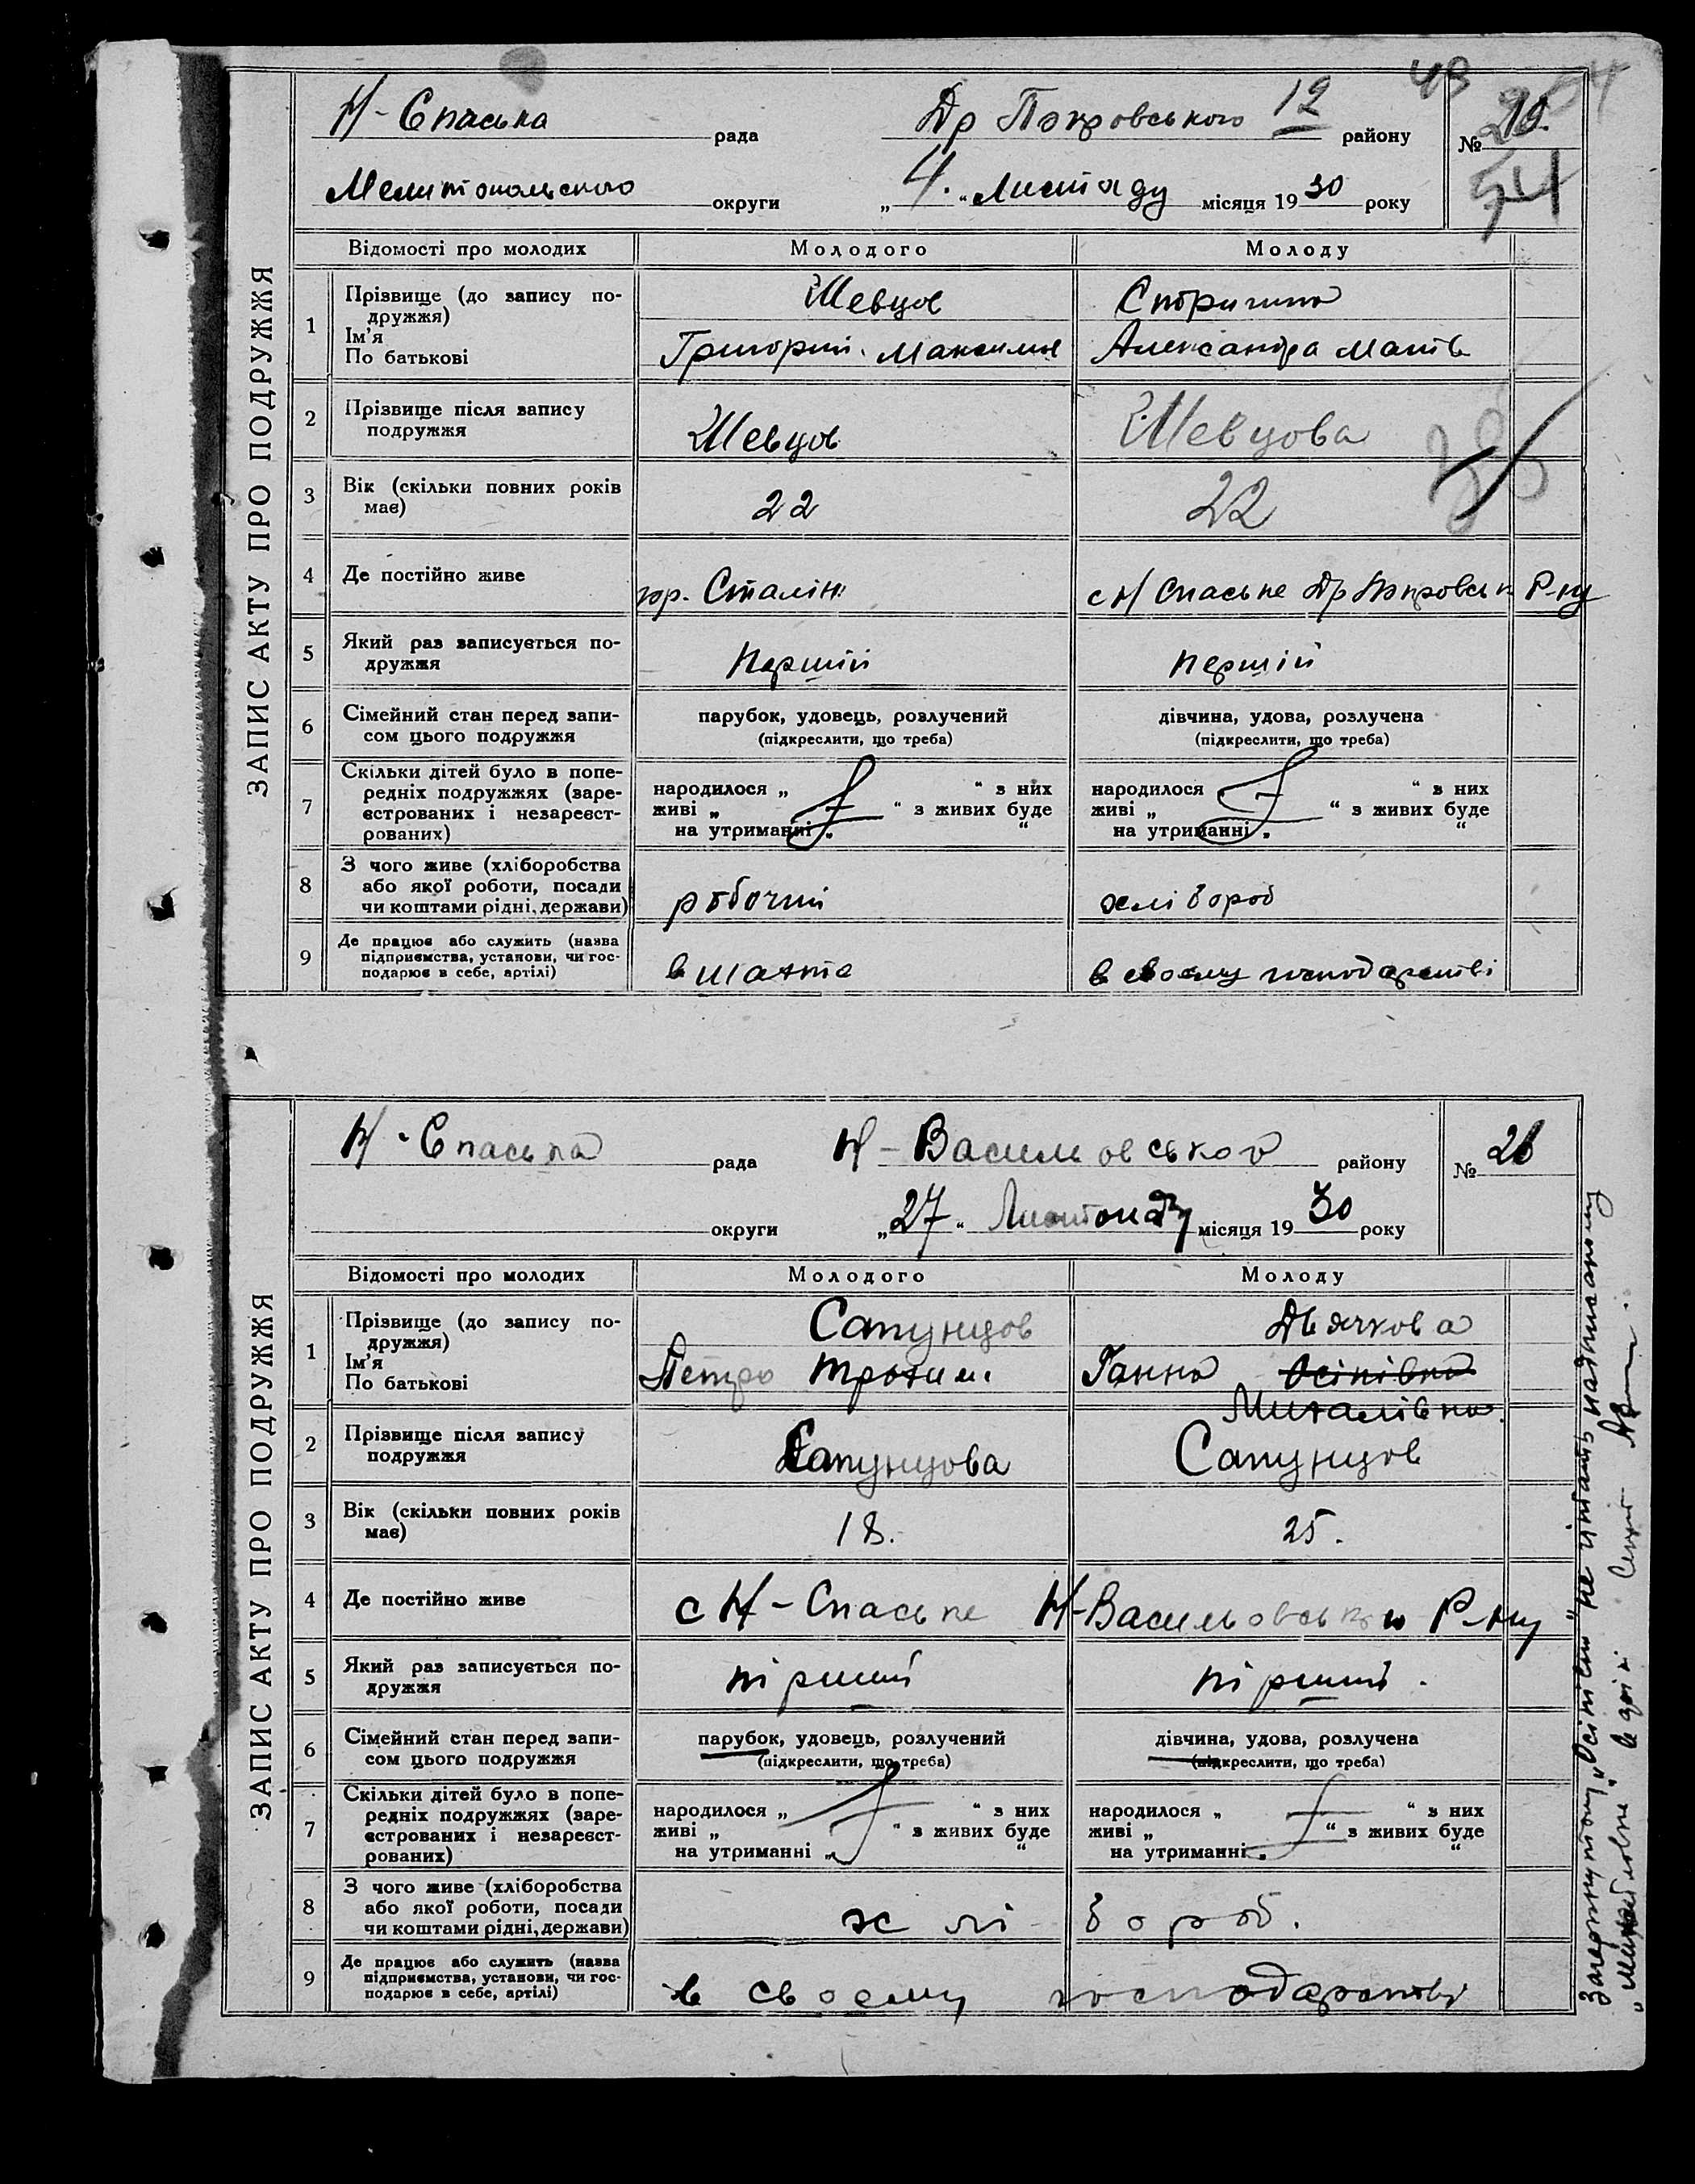 43
Н-Спаська рада Др Покровського 12 району № 19.
54
Мелитопольського округи „ 4. “ Листпаду місяця 1930 року
ЗАПИС АКТУ ПРО ПОДРУЖЖЯ
Відомості про молодих Молодого Молоду
1 Прізвище (до запису по-
дружжя) Шевцов
Ім’я
По батькові Григорий. Максимов Александра Матв
2 Прізвище після запису
подружжя Шевцов Шевцова
3 Вік (скільки повних років
має) 22 22
4 Де постійно живе гор. Сталін с Н Спаське Др Покровськ Р-ну
5 Який раз записується по-
дружжя першій першій
6 Сімейний стан перед запи-
сом цього подружжя
парубок, удовець, розлучений дівчина, удова, розлучена
(підкреслити, що треба) (підкреслити, що треба)
7 Скільки дітей було в попе-
редніх подружжях (заре-
єстрованих і незареєст-
рованих)
народилося „ “ з них народилося „ “ з них
живі „ “ з живих буде живі „ “ з живих буде
на утриманні „ “ на утриманні „ “
8 З чого живе (хліборобства
або якої роботи, посади
чи коштами рідні, держави) робочий хлібороб
9 Де працює або служить (назва
підприємства, установи, чи гос-
подарює в себе, артілі) в шахте в своєму господарстві
Н-Спаська рада Н-Васильовського району № 26
округи „ 27 “ Листопаду місяця 1930 року
ЗАПИС АКТУ ПРО ПОДРУЖЖЯ
Відомості про молодих Молодого Молоду
1 Прізвище (до запису по-
дружжя) Сапунцов Дьячкова
Ім’я
По батькові Петро Трохим. Ганна Осіпівна
Михалівна.
2 Прізвище після запису
подружжя Сапунцова Сапунцов
3 Вік (скільки повних років
має) 18. 25.
4 Де постійно живе с Н-Спаське Н-Васильовського Р-ну
5 Який раз записується по-
дружжя пірший пірший.
6 Сімейний стан перед запи-
сом цього подружжя
парубок, удовець, розлучений дівчина, удова, розлучена
(підкреслити, що треба) (підкреслити, що треба)
7 Скільки дітей було в попе-
редніх подружжях (заре-
єстрованих і незареєст-
рованих)
народилося „ “ з них народилося „ “ з них
живі „ “ з живих буде живі „ “ з живих буде
на утриманні „ “ на утриманні „ “
8 З чого живе (хліборобства
або якої роботи, посади
чи коштами рідні, держави) хлібороб.
9 Де працює або служить (назва
підприємства, установи, чи гос-
подарює в себе, артілі) в своєму господарстві
„Осіпівни“ не читать надписаному